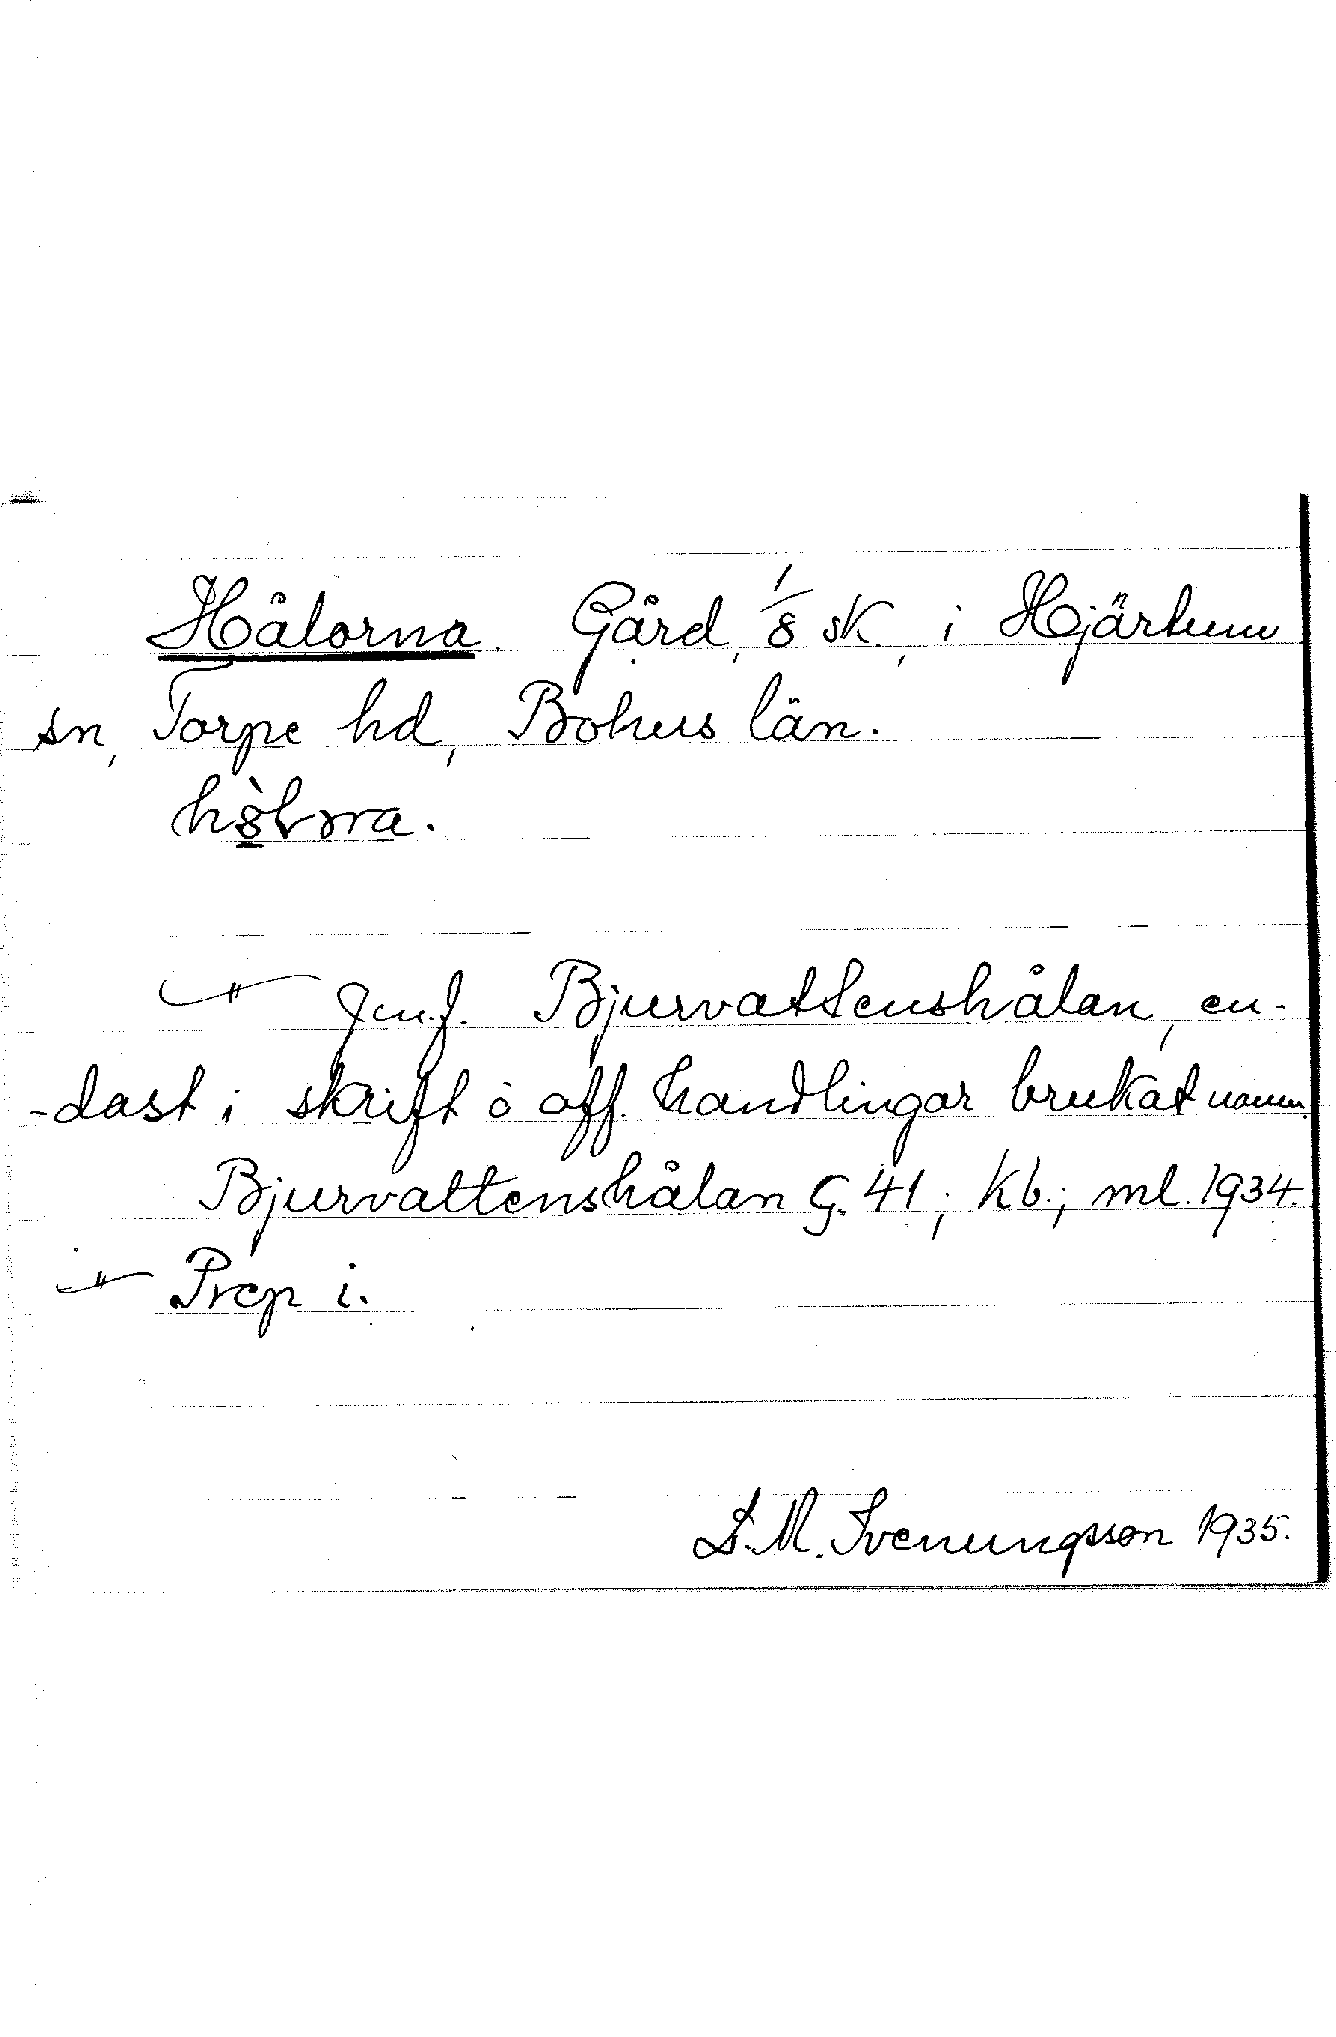 Hålorna. Gård, 1/8 sk., i Hjärtum
sn, Torpe hd, Bohus län.
-"- Jmf. Bjurvattenshålan, en-
-dast i skrift o off. handlingar brukat namn.
Bjurvattenshålan G. 41; Kb.; ml. 1934.
-"- Prep i.
S. M. Svenungsson 1935.